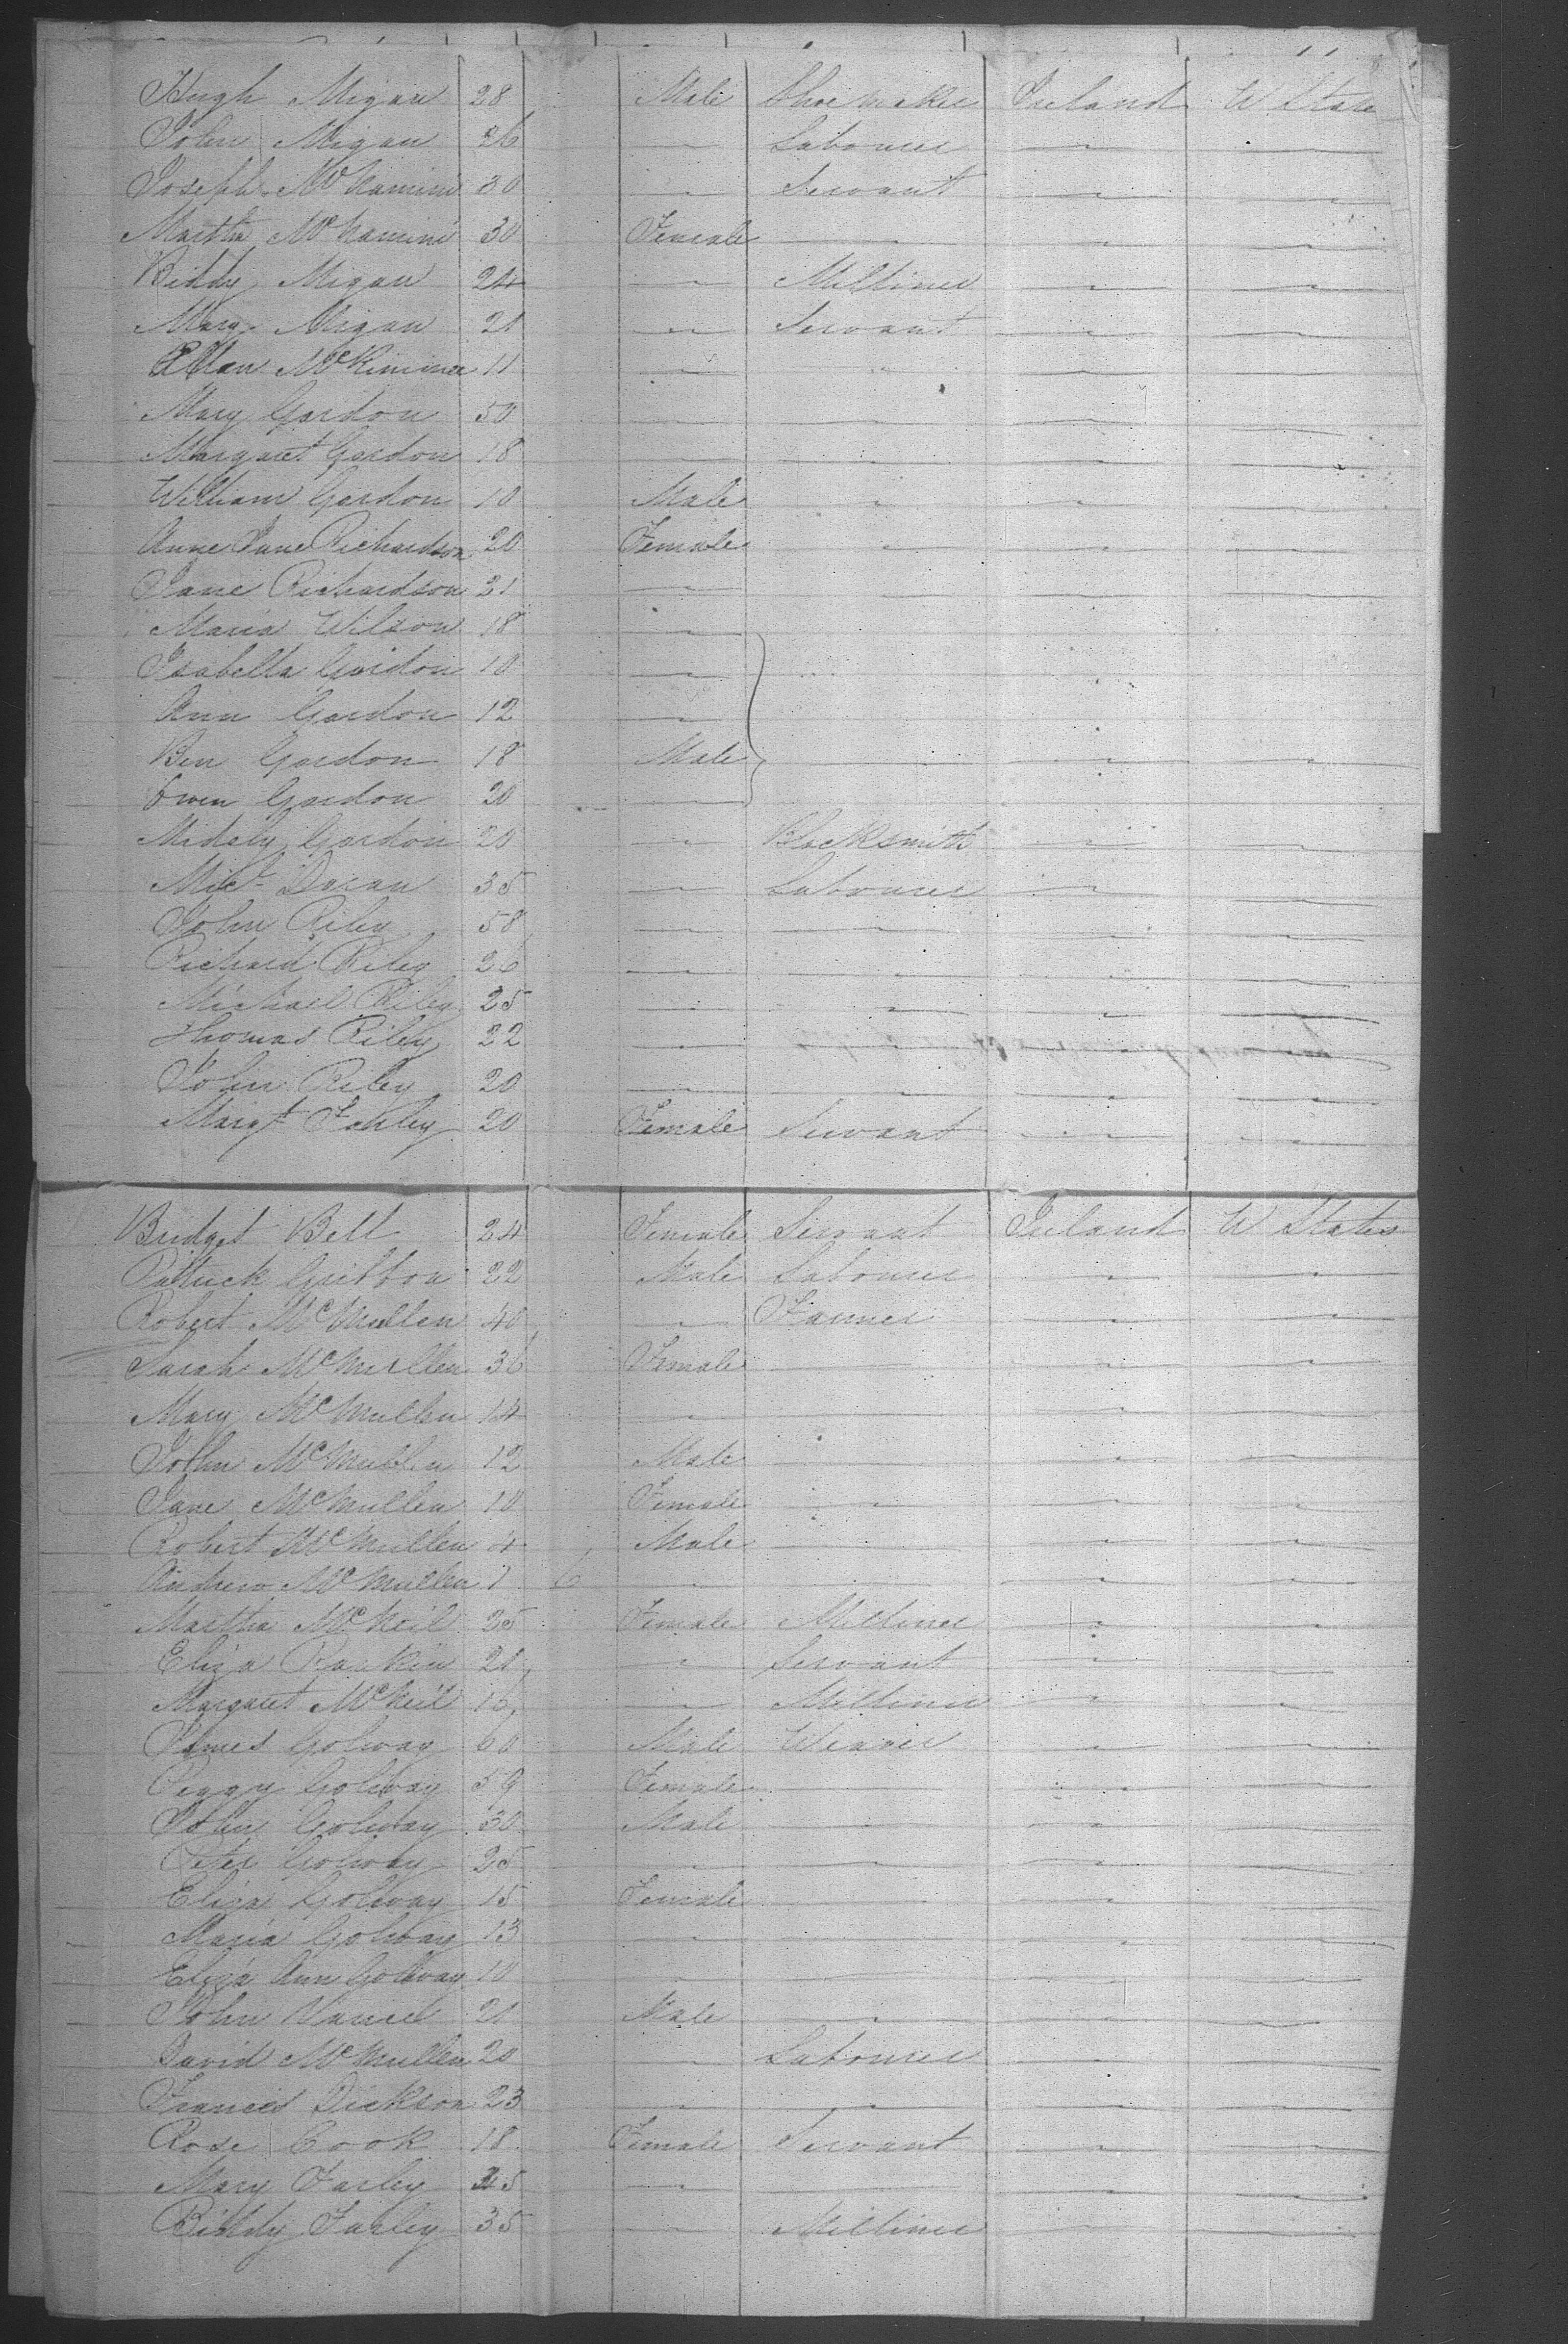 Hugh Migan 28 Male Shoe maker Ireland U State
John Migan 26 — Labourer — —
Joseph 30 — Servant — —
Martha 30 Female — — —
Biddy Migan 24 — Milliner — —
Mary Migan 21 — Servant — —
11 — " — —
Mary Gordon 50 — — — —
Margaret Gordon 18 — — — —
William Gordon 10 Male — — —
Anne Jane Richardson 20 Female — — —
Jane Richardson 21 — — — —
Maria Wilson 18 —
Isabella Gordon 10 —
Ann Gordon 12 —
Ben Gordon 18 Male — — —
Owen Gordon 20 —
Gordon 20 — Blacksmith — —
Micl Doran 35 — Labourer — —
John Riley 58 — — — —
Richard Riley 26 — — — —
Michael Riley 25 — — — —
Thomas Riley 22 — — — —
John Riley 20 — — — —
Margt Fahley 20 Female Servant — —
Bridget Bell 24 Female Servant Ireland U States
Patrick Gribbon 22 Male Labourer — —
Robert McMullen 40 — Farmer — —
Sarah McMullen 36 Female — — —
Mary McMullen 14 — — — —
John McMullen 12 Male — — —
Jane McMullen 10 Female — — —
Robert McMullen 4 Male — — —
Andrew McMullen 1 6 — — — —
Martha McNeil 25 Female Milliner — —
Eliza Rankin 21 — Servant — —
Margaret McNeil 16 — Milliner — —
James Golway 60 Male Weaver — —
Peggy Golway 59 Female — — —
John Golway 30 Male — — —
Peter Golway 25 — — — —
Eliza Golway 15 Female — — —
Maria Golway 13 — — — —
Eliza Ann Golway 10 — — — —
John Vance 21 Male — — —
David McMullen 20 — Labourer — —
Francis Dickson 23 — — — —
Rose Cook 18 Female Servant — —
Mary Farley 25 — — — —
Biddy Farley 35 — Milliner — —